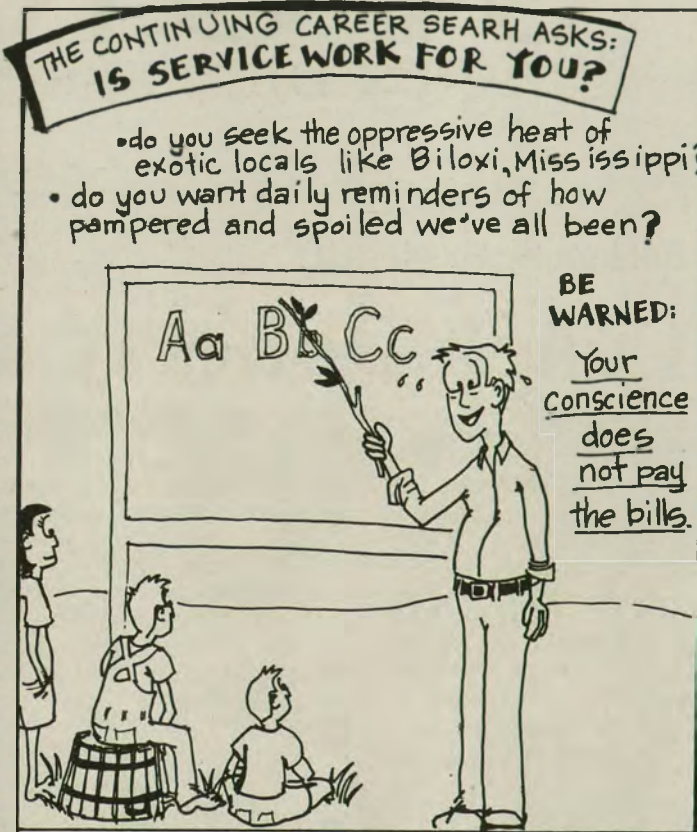 THE CONTINUING CAREER SEARH ASKS:
IS SERVICE WORK FOR YOU?
•do you seek the oppressive heat of
exotic locals like Biloxi, Mississippi?
• do you want daily reminders of how
pampered and spoiled we've all been?
Aa Bb Cc
BE
WARNED:
Your
conscience
does
not pay
the bills.